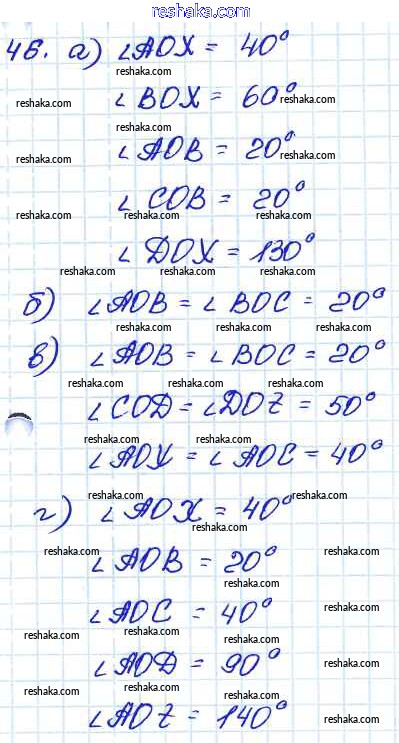 reshaka.com
46. а) ∠AOX = 40°
reshaka.com
∠BOX = 60°
reshaka.com reshaka.com reshaka.com
∠AOB = 20°
reshaka.com reshaka.com
∠COB = 20°
reshaka.com reshaka.com reshaka.com
∠DOX = 130°
reshaka.com reshaka.com reshaka.com
б) ∠AOB = ∠BOC = 20°
reshaka.com reshaka.com reshaka.com
в) ∠AOB = ∠BOC = 20°
reshaka.com reshaka.com reshaka.com
∠COD = ∠DOZ = 50°
reshaka.com reshaka.com
∠AOX = ∠AOC = 40°
reshaka.com
г) ∠AOX = 40°
reshaka.com reshaka.com
reshaka.com
∠AOB = 20°
reshaka.com reshaka.com
reshaka.com
∠AOC = 40°
reshaka.com reshaka.com
reshaka.com
∠AOD = 90°
reshaka.com reshaka.com
reshaka.com
∠AOZ = 140°
reshaka.com reshaka.com